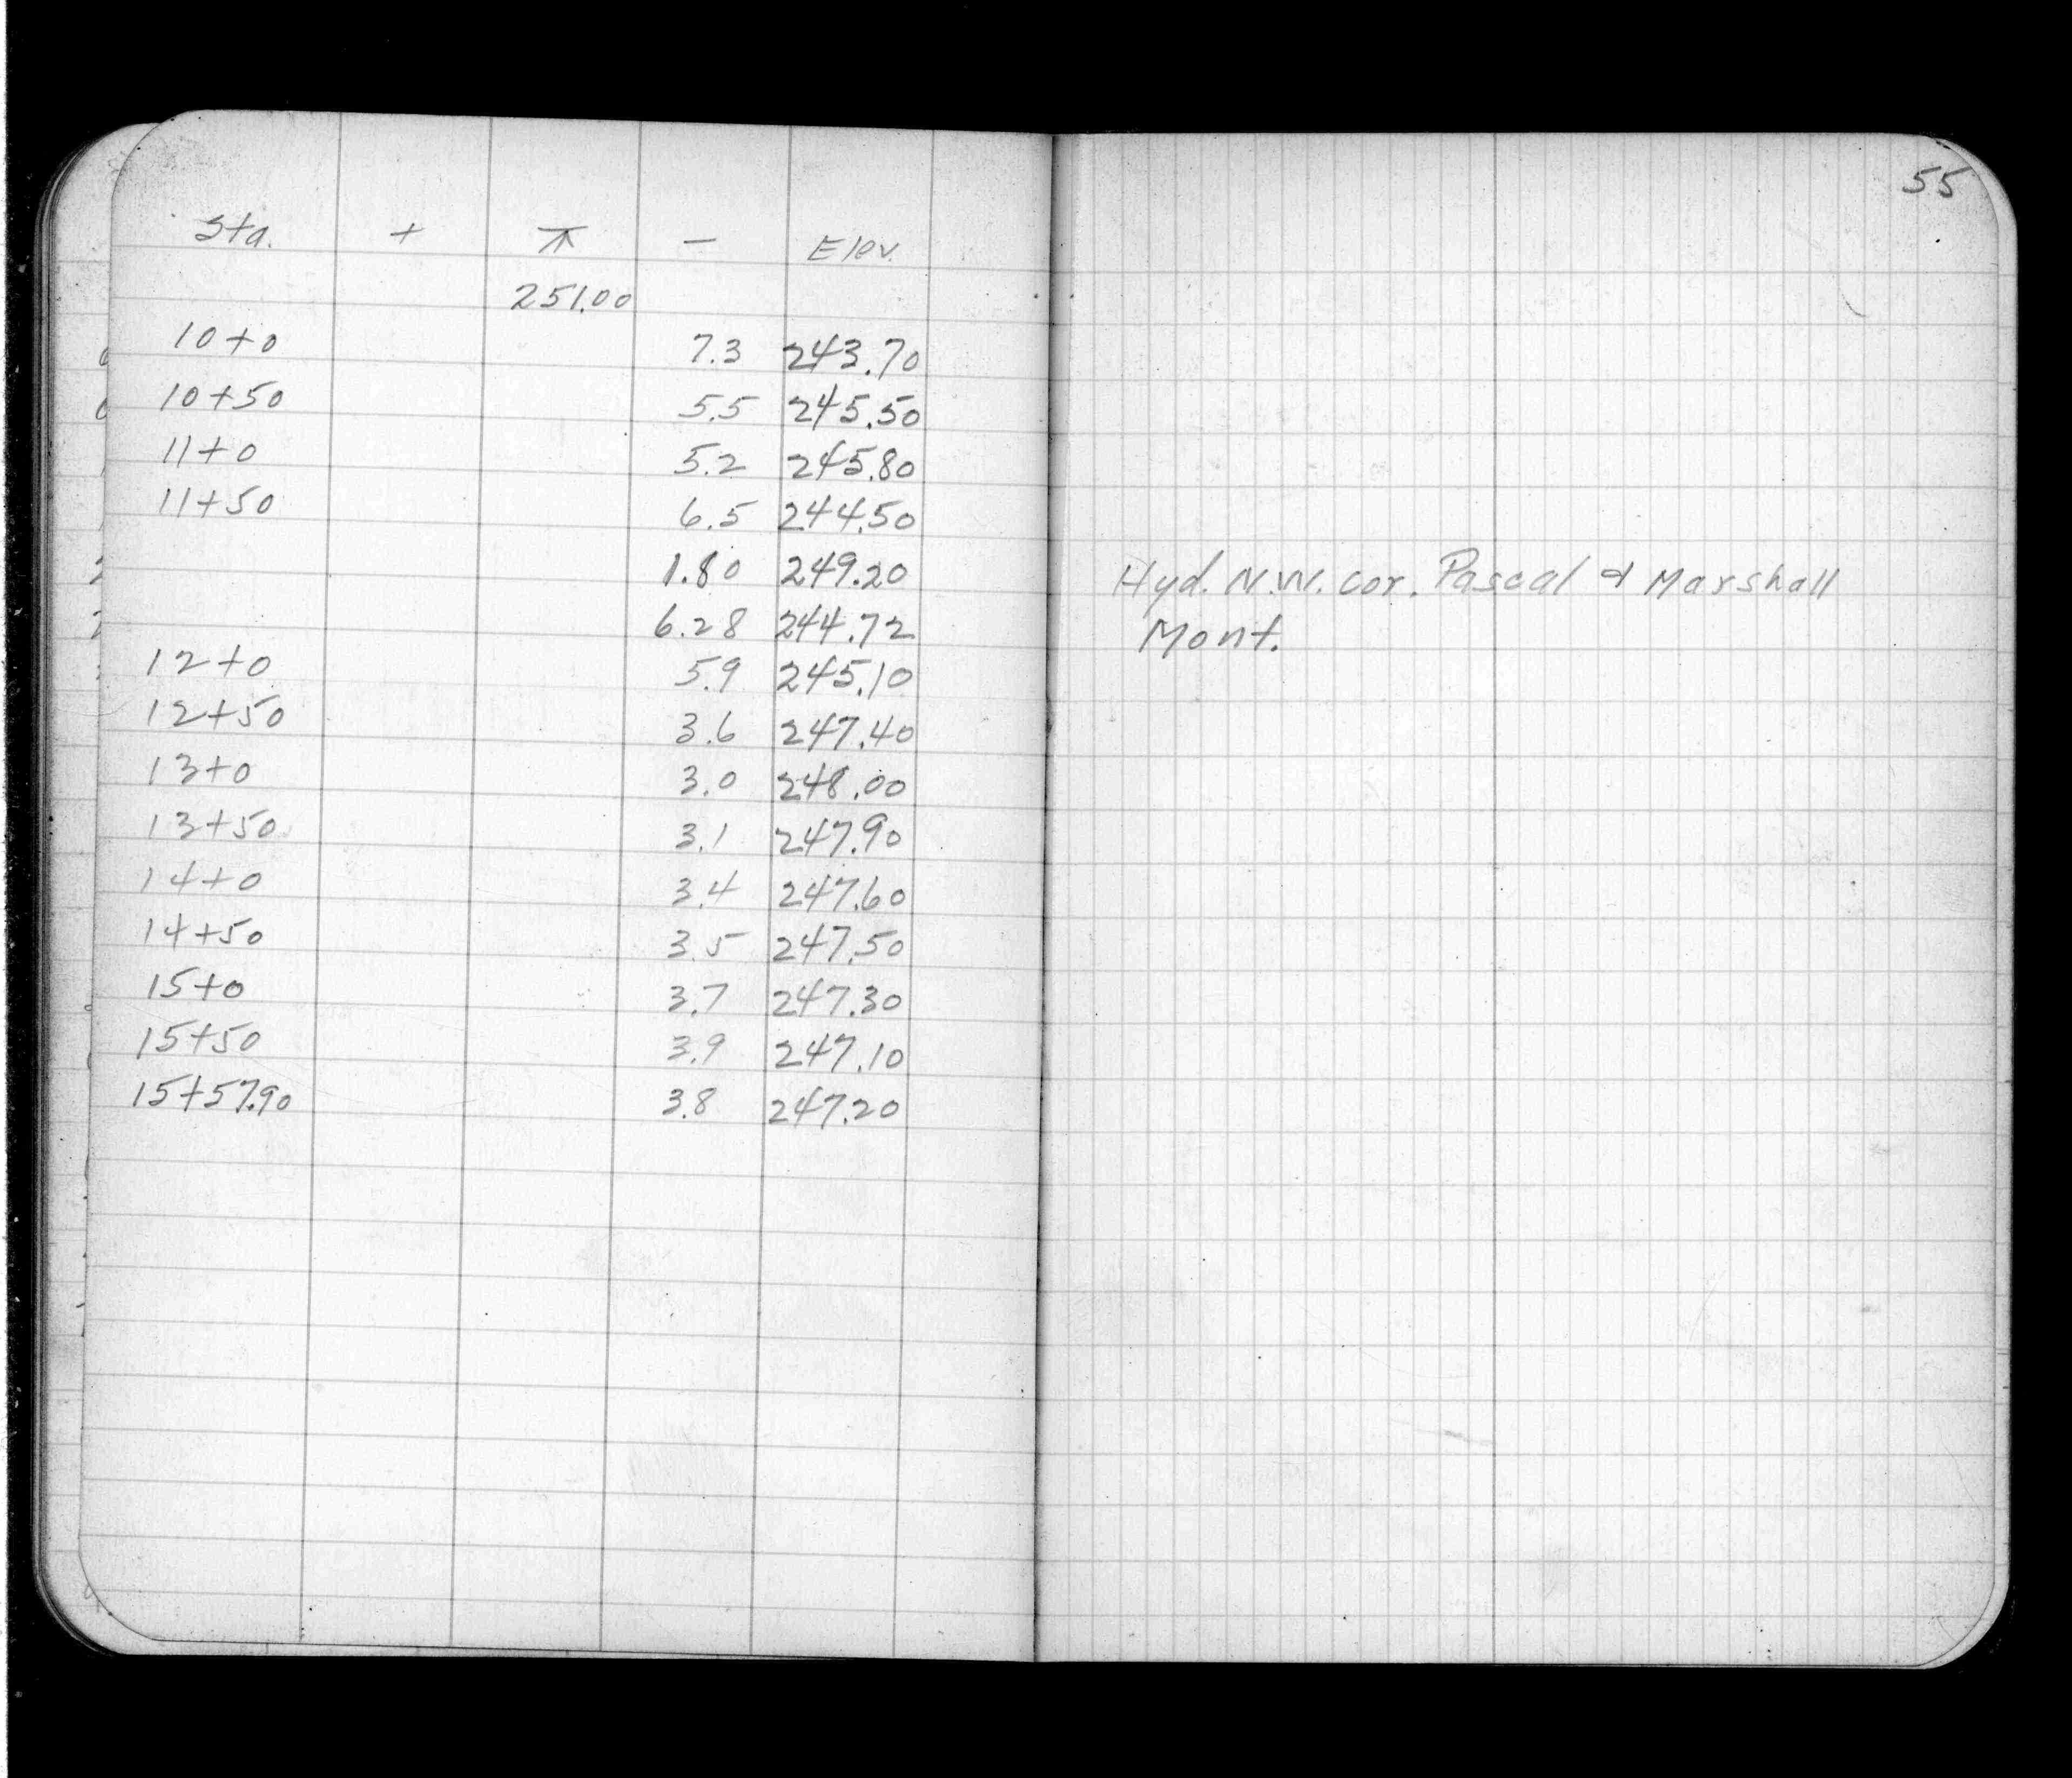 55
Sta. + ⊼ - Elev.
251.00
10+0 7.3 243.70
10+50 5.5 245.50
11+0 5.2 245.80
11+50 6.5 244.50
1.80 249.20 Hyd. N.W. cor. Pascal & Marshall
6.28 244.72 Mont.
12+0 5.9 245.10
12+50 3.6 247.40
13+0 3.0 248.00
13+50 3.1 247.90
14+0 3.4 247.60
14+50 3.5 247.50
15+0 3.7 247.30
15+50 3.9 247.10
15+57.90 3.8 247.20